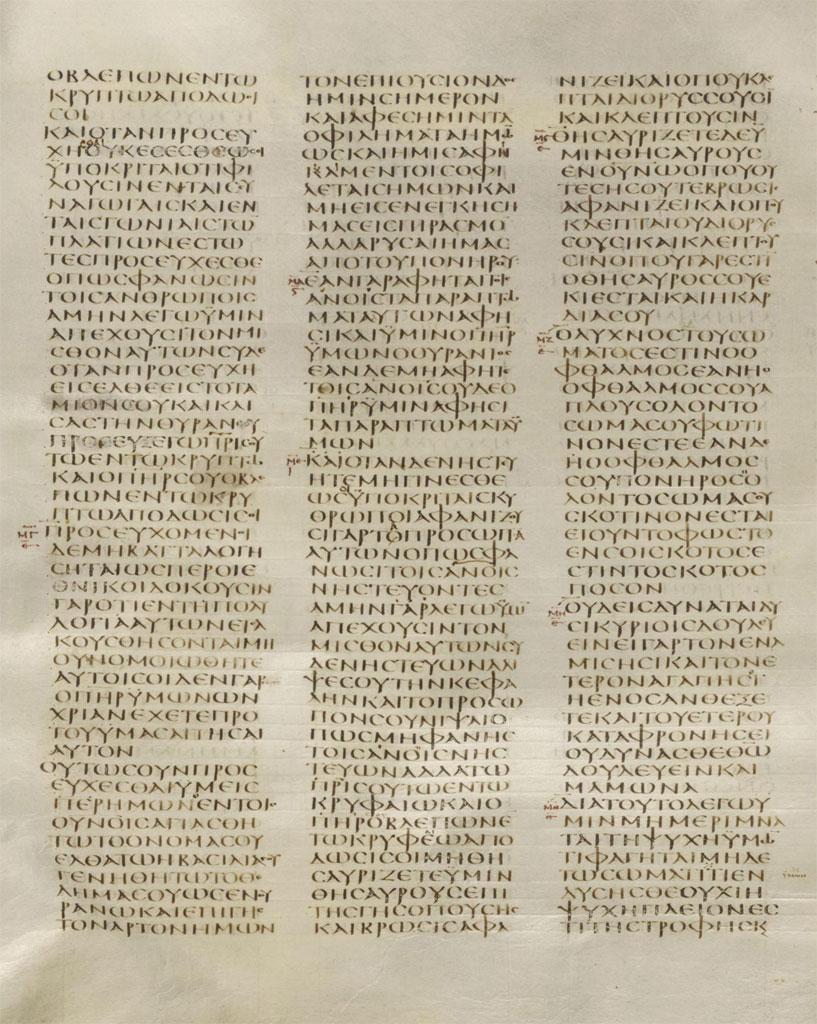 ΟΒΛΕΠΩΝΕΝΤΩ
ΚΡΥΠΤΩΑΠΟΔΩϹΙ
ϹΟΙ
ΚΑΙΟΤΑΝΠΡΟϹΕΥ
ΧΗΟΥΚΕϹΕϹΘΕΩϹΟΙ
ΫΠΟΚΡΙΤΑΙΟΤΙΦΙ
ΛΟΥϹΙΝΕΝΤΑΙϹΥ
ΝΑΓΩΓΑΙϹΚΑΙΕΝ
ΤΑΙϹΓΩΝΙΑΙϹΤΩ
ΠΛΑΤΙΩΝΕϹΤΩ
ΤΕϹΠΡΟϹΕΥΧΕϹΘΕ
ΟΠΩϹΦΑΝΩϹΙΝ
ΤΟΙϹΑΝΘΡΩΠΟΙϹ
ΑΜΗΝΛΕΓΩΫΜΙΝ
ΑΠΕΧΟΥϹΙΤΟΝΜΙ
ϹΘΟΝΑΥΤΩΝϹΥΔΕ
ΟΤΑΝΠΡΟϹΕΥΧΗ
ΕΙϹΕΛΘΕΕΙϹΤΟΤΑ
ΜΙΟΝϹΟΥΚΑΙΚΛΙ
ϹΑϹΤΗΝΘΥΡΑΝϹΟΥ
ΠΡΟϹΕΥΞΕΤΩΠΡΙϹΟΥ
ΤΩΕΝΤΩΚΡΥΠΤΩ
ΚΑΙΟΠΗΡϹΟΥΟΒΛΕ
ΠΩΝΕΝΤΩΚΡΥ
ΠΤΩΑΠΟΔΩϹΙϹΟΙ
ΜΓ ΠΡΟϹΕΥΧΟΜΕΝΟΙ
ΔΕΜΗΚΑΤΤΑΛΟΓΗ
ϹΗΤΑΙΩϹΠΕΡΟΙΕ
ΘΝΙΚΟΙΔΟΚΟΥϹΙΝ
ΓΑΡΟΤΙΕΝΤΗΠΟΛΥ
ΛΟΓΙΑΑΥΤΩΝΕΙϹΑ
ΚΟΥϹΘΗϹΟΝΤΑΙΜΗ
ΟΥΝΟΜΟΙΩΘΗΤΕ
ΑΥΤΟΙϹΟΙΔΕΝΓΑΡ
ΟΠΗΡΫΜΩΝΩΝ
ΧΡΙΑΝΕΧΕΤΕΠΡΟ
ΤΟΥΥΜΑϹΑΙΤΗϹΑΙ
ΑΥΤΟΝ
ΟΥΤΩϹΟΥΝΠΡΟϹ
ΕΥΧΕϹΘΑΙΫΜΕΙϹ
ΠΕΡΗΜΩΝΟΕΝΤΟΙϹ
ΟΥΝΟΙϹΑΓΙΑϹΘΗ
ΤΩΤΟΟΝΟΜΑϹΟΥ
ΕΛΘΑΤΩΗΒΑϹΙΛΙΑϹΟΥ
ΓΕΝΗΘΗΤΩΤΟΘΕ
ΛΗΜΑϹΟΥΩϹΕΝΟΥ
ΡΑΝΩΚΑΙΕΠΙΓΗϹ
ΤΟΝΑΡΤΟΝΗΜΩΝ
ΤΟΝΕΠΙΟΥϹΙΟΝΔΟϹ
ΗΜΙΝϹΗΜΕΡΟΝ
ΚΑΙΑΦΕϹΗΜΙΝΤΑ
ΟΦΙΛΗΜΑΤΑΗΜΩ
ΩϹΚΑΙΗΜΙϹΑΦΗ
ΚΑΜΕΝΤΟΙϹΟΦΙ
ΛΕΤΑΙϹΗΜΩΝΚΑΙ
ΜΗΕΙϹΕΝΕΓΚΗϹΗ
ΜΑϹΕΙϹΠΙΡΑϹΜΟ
ΑΛΛΑΡΥϹΑΙΗΜΑϹ
ΑΠΟΤΟΥΠΟΝΗΡΟΥ
ΜΔ Ϛ ΕΑΝΓΑΡΑΦΗΤΑΙΤΟΙϹ
ΑΝΟΙϹΤΑΠΑΡΑΠΤΩ
ΜΑΤΑΑΥΤΩΝΑΦΗ
ϹΙΚΑΙΫΜΙΝΟΠΗΡ
ΫΜΩΝΟΟΥΡΑΝΙΟϹ
ΕΑΝΔΕΜΗΑΦΗΤΕ
ΤΟΙϹΑΝΟΙϹΟΥΔΕΟ
ΠΗΡΫΜΙΝΑΦΗϹΙ
ΤΑΠΑΡΑΠΤΩΜΑΤΑΫ
ΜΩΝ
ΜΕ Ι ΚΑΙΟΤΑΝΔΕΝΗϹΤΕΥ
ΗΤΕΜΗΓΙΝΕϹΘΕ
ΩϹΟΙΥΠΟΚΡΙΤΑΙϹΚΥ
ΘΡΩΠΟΙΑΦΑΝΙΖΟΥ
ϹΙΓΑΡΤΟΠΡΟϹΩΠΑ
ΑΥΤΩΝΟΠΩϹΦΑ
ΝΩϹΙΤΟΙϹΑΝΟΙϹ
ΝΗϹΤΕΥΟΝΤΕϹ
ΑΜΗΝΓΑΡΛΕΓΩΫΜΙ
ΑΠΕΧΟΥϹΙΝΤΟΝ
ΜΙϹΘΟΝΑΥΤΩΝϹΥ
ΔΕΝΗϹΤΕΥΩΝΑΛΙ
ΨΕϹΟΥΤΗΝΚΕΦΑ
ΛΗΝΚΑΙΤΟΠΡΟϹΩ
ΠΟΝϹΟΥΝΙΨΑΙΟ
ΠΩϹΜΗΦΑΝΗϹ
ΤΟΙϹΑΝΟΙϹΝΗϹ
ΤΕΥΩΝΑΛΛΑΤΩ
ΠΡΙϹΟΥΤΩΕΝΤΩ
ΚΡΥΦΑΙΩΚΑΙΟ
ΠΗΡΟΒΛΕΠΩΝΕ
ΤΩΚΡΥΦΕΩΑΠΟ
ΔΩϹΙϹΟΙΜΗΘΗ
ϹΑΥΡΙΖΕΤΕΥΜΙΝ
ΘΗϹΑΥΡΟΥϹΕΠΙ
ΤΗϹΓΗϹΟΠΟΥϹΗϹ
ΚΑΙΒΡΩϹΙϹΑΦΑ
ΝΙΖΕΙΚΑΙΟΠΟΥΚΛΕ
ΠΤΑΙΔΙΟΡΥϹϹΟΥϹΙ
ΚΑΙΚΛΕΠΤΟΥϹΙΝ
ΜϚ Ε ΘΗϹΑΥΡΙΖΕΤΕΔΕΥ
ΜΙΝΘΗϹΑΥΡΟΥϹ
ΕΝΟΥΝΩΟΠΟΥΟΥ
ΤΕϹΗϹΟΥΤΕΒΡΩϹΙϹ
ΑΦΑΝΙΖΕΙΚΑΙΟΠΟΥ
ΚΛΕΠΤΑΙΟΥΔΙΟΡΥϹ
ϹΟΥϹΙΚΑΙΚΛΕΠΤΟΥ
ϹΙΝΟΠΟΥΓΑΡΕϹΤΙ
ΟΘΗϹΑΥΡΟϹϹΟΥΕ
ΚΙΕϹΤΑΙΚΑΙΗΚΑΡ
ΔΙΑϹΟΥ
ΜΖ Ε ΟΛΥΧΝΟϹΤΟΥϹΩ
ΜΑΤΟϹΕϹΤΙΝΟΟ
ΦΘΑΛΜΟϹΕΑΝΗ
ΟΦΘΑΛΜΟϹϹΟΥΑ
ΠΛΟΥϹΟΛΟΝΤΟ
ϹΩΜΑϹΟΥΦΩΤΙ
ΝΟΝΕϹΤΕΕΑΝΔΕ
ΗΟΟΦΘΑΛΜΟϹ
ϹΟΥΠΟΝΗΡΟϹΟ
ΛΟΝΤΟϹΩΜΑϹΟΥ
ϹΚΟΤΙΝΟΝΕϹΤΑΙ
ΕΙΟΥΝΤΟΦΩϹΤΟ
ΕΝϹΟΙϹΚΟΤΟϹΕ
ϹΤΙΝΤΟϹΚΟΤΟϹ
ΠΟϹΟΝ
ΜΗ Ε ΟΥΔΕΙϹΔΥΝΑΤΑΙΔΥ
ϹΙΚΥΡΙΟΙϹΔΟΥΛΕΥ
ΕΙΝΕΙΓΑΡΤΟΝΕΝΑ
ΜΙϹΗϹΙΚΑΙΤΟΝΕ
ΤΕΡΟΝΑΓΑΠΗϹΙ
ΗΕΝΟϹΑΝΘΕΞΕ
ΤΕΚΑΙΤΟΥΕΤΕΡΟΥ
ΚΑΤΑΦΡΟΝΗϹΕΙ
ΟΥΔΥΝΑϹΘΕΘΩ
ΔΟΥΛΕΥΕΙΝΚΑΙ
ΜΑΜΩΝΑ
ΜΘ Ε ΔΙΑΤΟΥΤΟΛΕΓΩΥ
ΜΙΝΜΗΜΕΡΙΜΝΑ
ΤΑΙΤΗΨΥΧΗΥΜΩ
ΤΙΦΑΓΗΤΑΙΜΗΔΕ
ΤΩϹΩΜΑΤΙΤΙΕΝ
ΔΥϹΗϹΘΕΟΥΧΙΗ
ΨΥΧΗΠΛΕΙΟΝΕϹ
ΤΙΤΗϹΤΡΟΦΗϹΚ